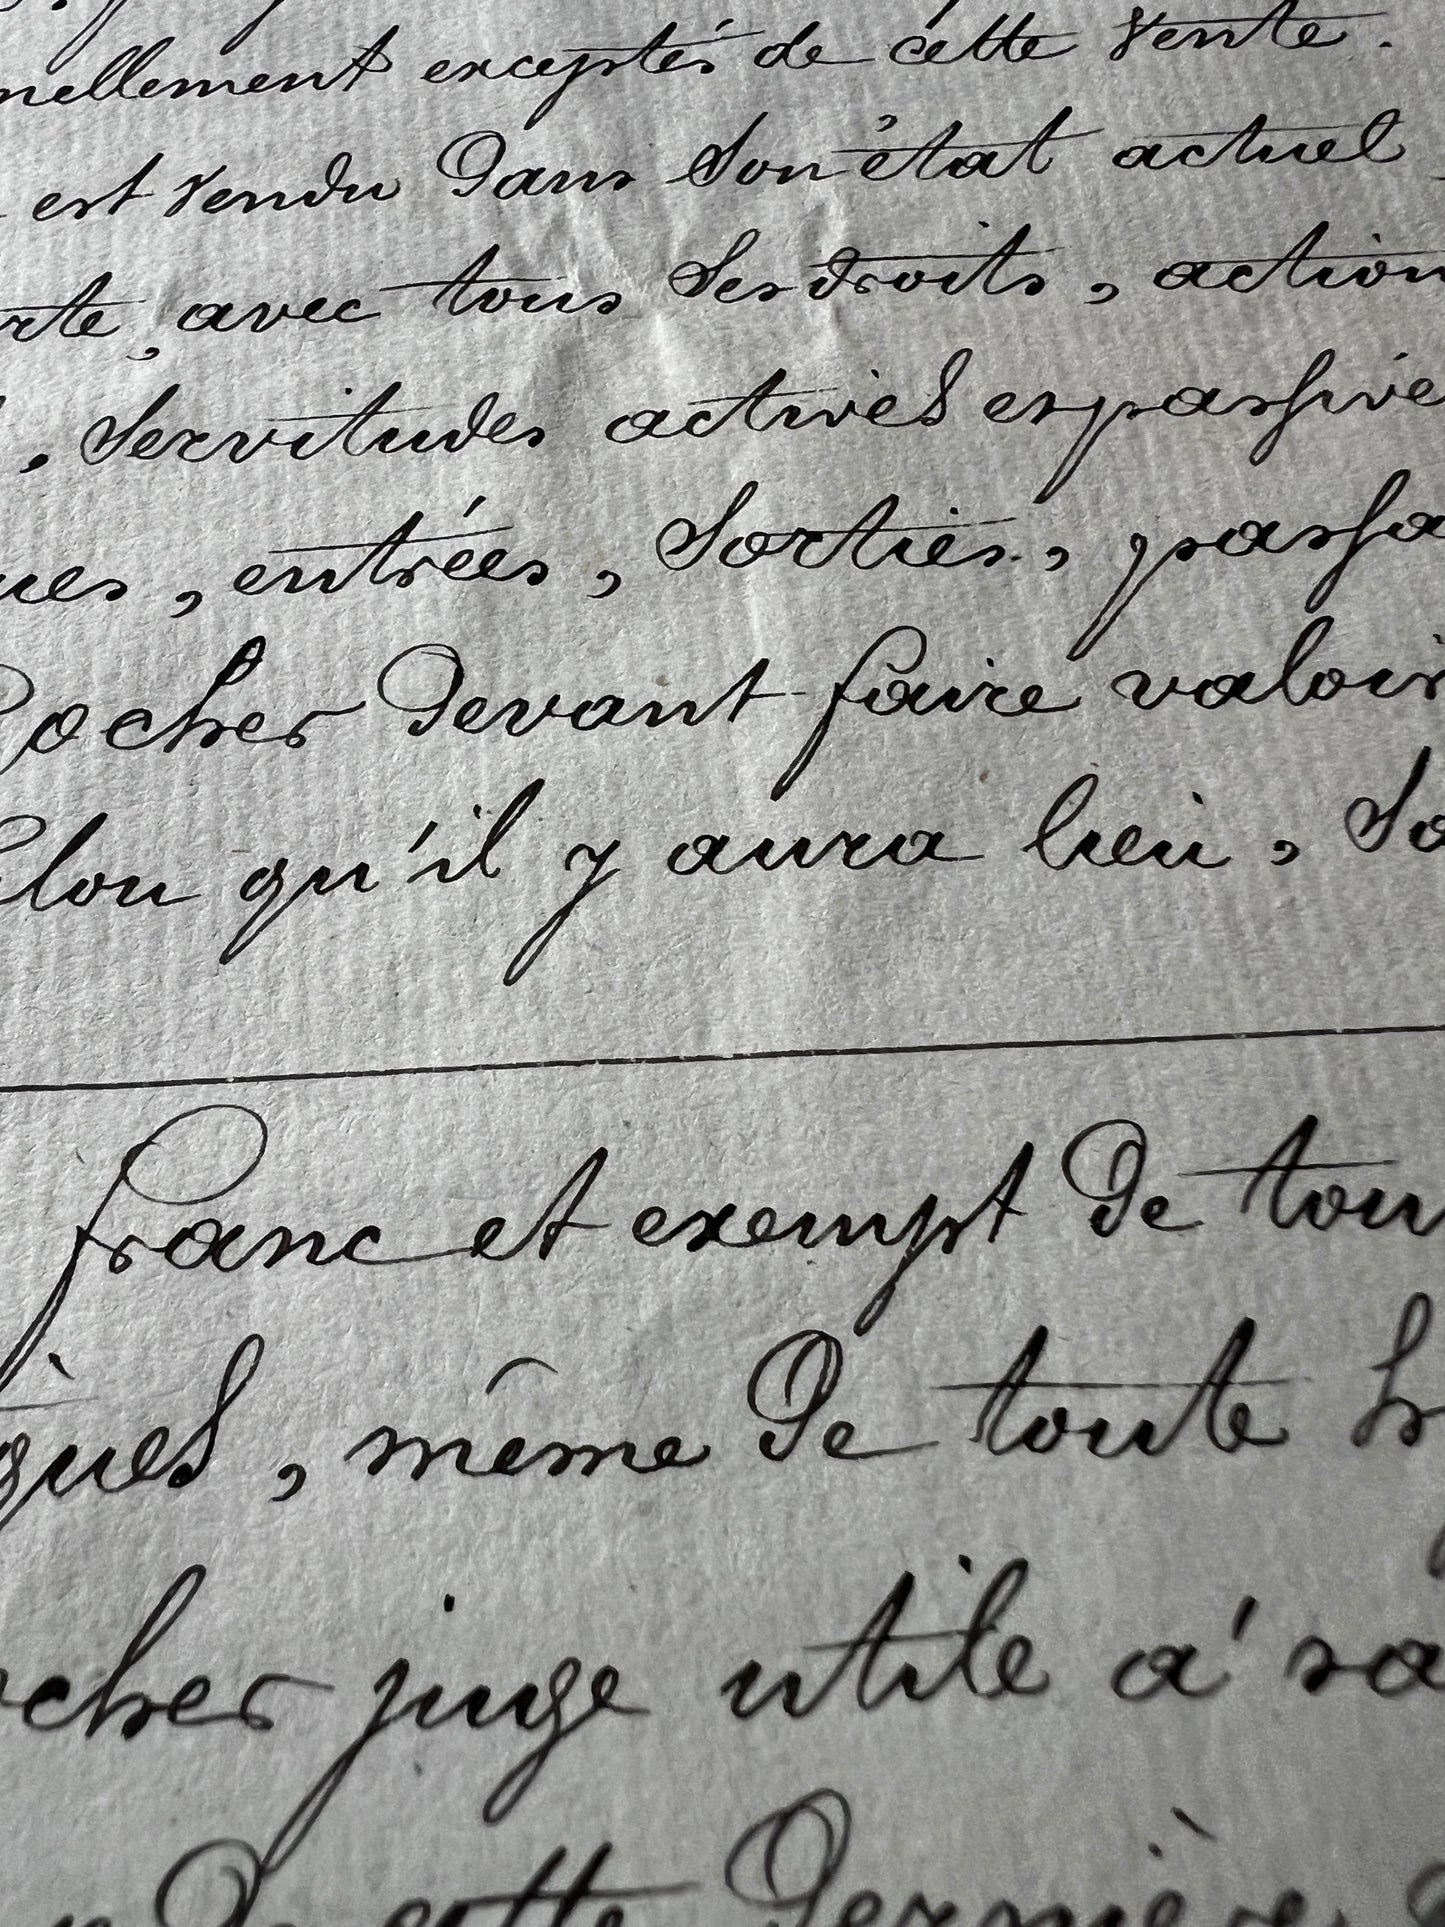 nellement exceptés de cette vente.
est vendu dans son état actuel
rte, avec tous ses droits, action
, servitudes actives et passive
ues, entrées, sorties, passa
Rocher devant faire valoir
elon qu'il y aura lieu, so
franc et exempt de tou
ques, même de toute h
ocher juge utile à sa
de cette dernière